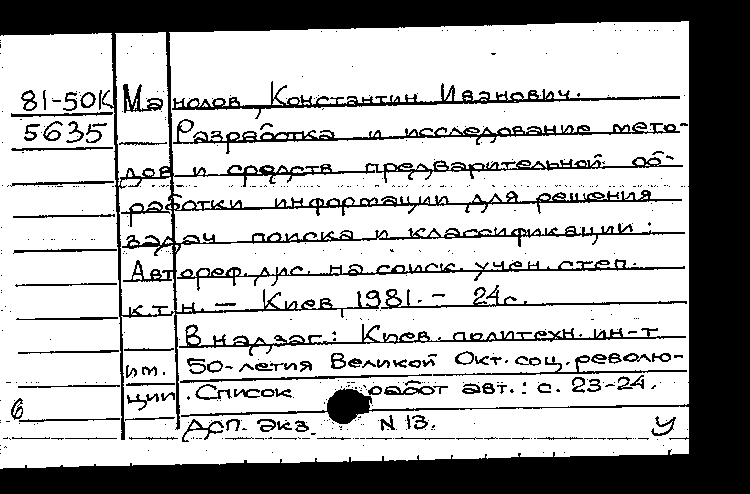 81-50К Манолов, Константин Иванович.
5635 Разработка и исследование мето-
дов и средств предварительной об-
работки информации для решения
задач поиска и классификации:
Автореф. дис. на соиск. учен. степ.
к.т.н. – Киев, 1981. – 24с.
В надзаг.: Киев. политехн. ин-т
им. 50-летия Великой Окт. соц. револю-
ции. Список работ авт.: с. 23-24.
6
Деп. экз. N 13. У